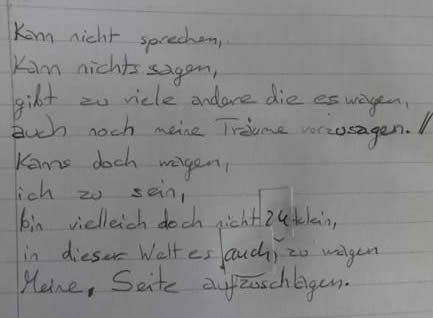 Kann nicht sprechen,
Kann nichts sagen,
gibt zu viele andere die es wagen,
auch noch meine Träume vorzusagen. //
Kanns doch wagen,
ich zu sein,
bin vielleich doch nicht zu klein,
in dieser Welt es auch, zu wagen
Meine, Seite aufzuschlagen.